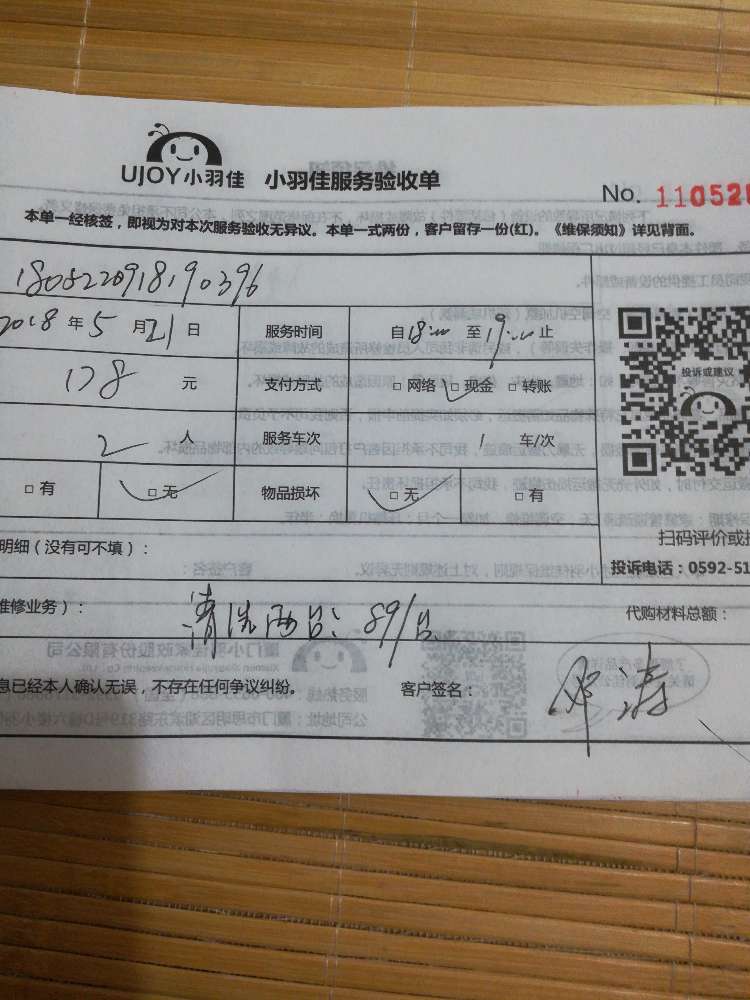 UJOY小羽佳 小羽佳服务验收单
No. 110528
本单一经核签，即视为对本次服务验收无异议。本单一式两份，客户留存一份(红)。《维保须知》详见背面。
1805220918190396
2018年5月21日 服务时间 自18:00至19:00止
178元 支付方式 □网络 □现金 □转账
2人 服务车次 1车/次
□有 □无 物品损坏 □无 □有
投诉或建议
扫码评价或
明细（没有可不填）：
投诉电话：0592-51
维修业务）： 清洗两台：89/台
代购材料总额：
息已经本人确认无误，不存在任何争议纠纷。 客户签名：